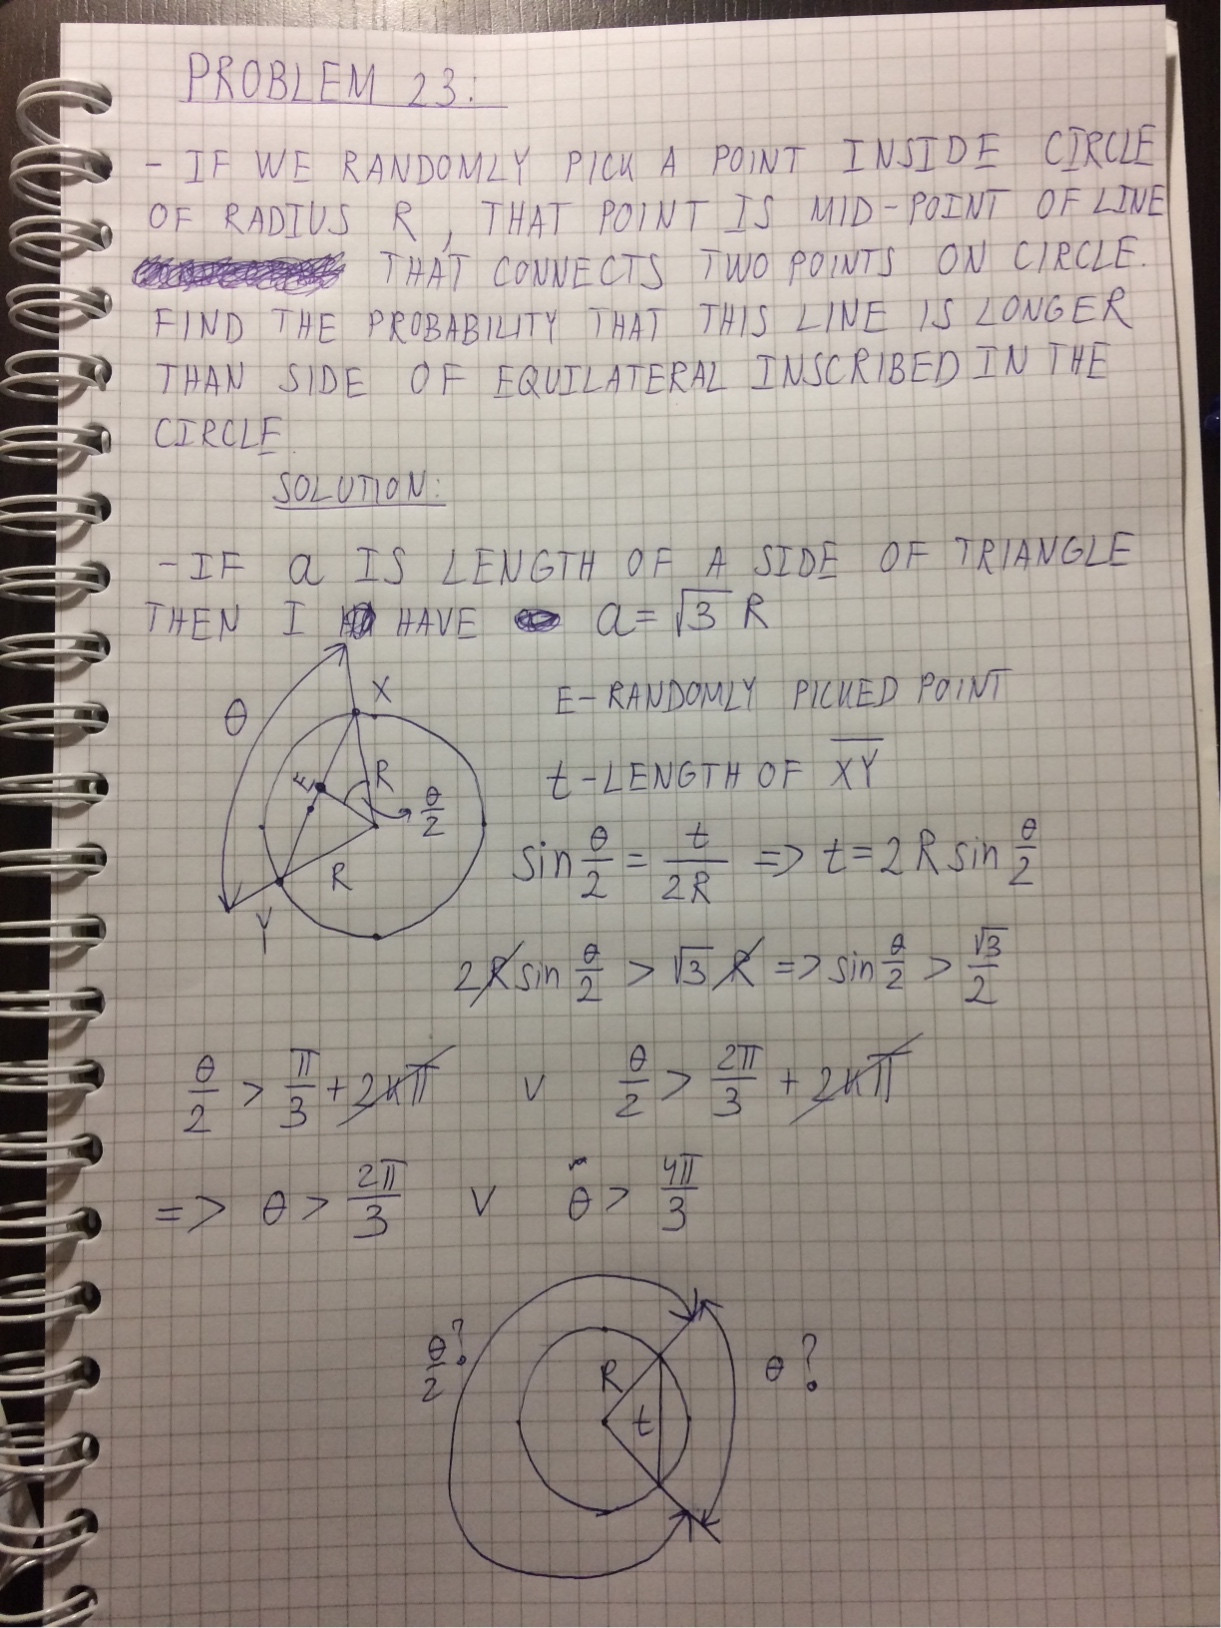 PROBLEM 23:
- IF WE RANDOMLY PICK A POINT INSIDE CIRCLE
OF RADIUS R, THAT POINT IS MID-POINT OF LINE
THAT CONNECTS TWO POINTS ON CIRCLE.
FIND THE PROBABILITY THAT THIS LINE IS LONGER
THAN SIDE OF EQUILATERAL INSCRIBED IN THE
CIRCLE.
SOLUTION:
- IF a IS LENGTH OF A SIDE OF TRIANGLE
THEN I HAVE a = √3 R
E - RANDOMLY PICKED POINT
t - LENGTH OF X̅Y̅
θ
X
E
R
θ/2
R
Y
sin θ/2 = t/2R => t = 2R sin θ/2
2R sin θ/2 > √3 R => sin θ/2 > √3/2
θ/2 > π/3 + 2kπ v θ/2 > 2π/3 + 2kπ
=> θ > 2π/3 v θ > 4π/3
θ/2 ?
R
t
θ ?